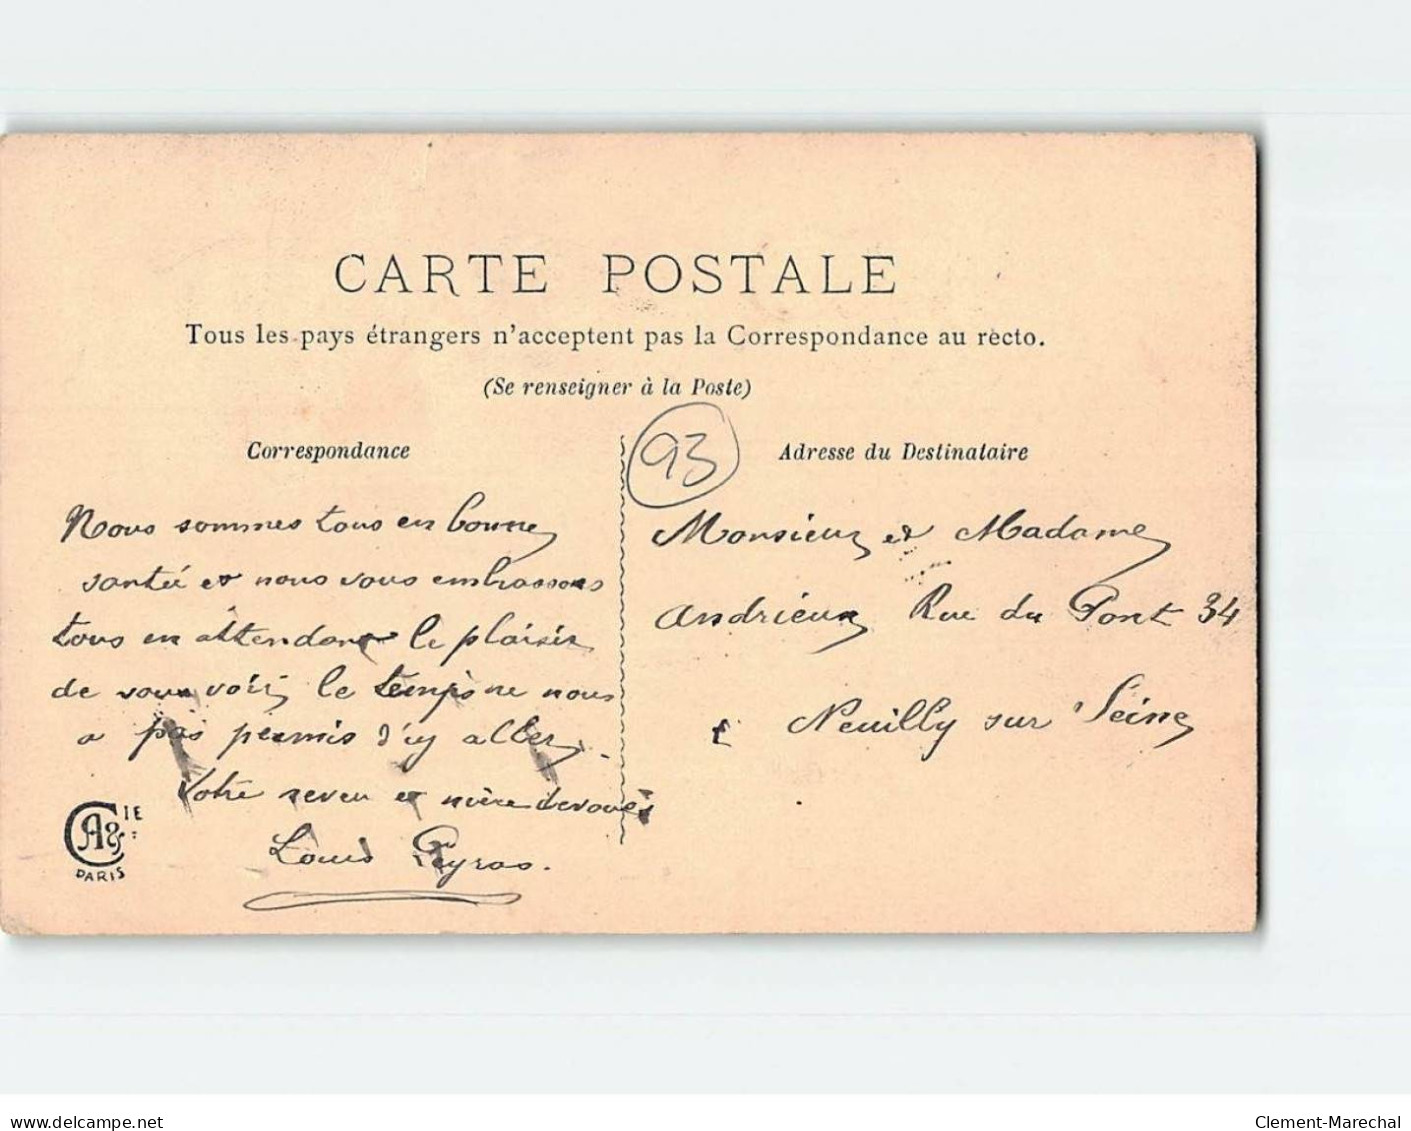 CARTE POSTALE
Tous les pays étrangers n'acceptent pas la Correspondance au recto.
(Se renseigner à la Poste)
Correspondance
93
Adresse du Destinataire
Nous sommes tous en bonne
santée et nous vous embrassons
tous en attendant le plaisir
de vous voir, le temps ne nous
a pas permis d'y aller.
Votre neveu et nièce devoués
Louis Peyras.
Monsieur et Madame
Andrieux Rue du Pont 34
à Neuilly sur Seine
CA& IE
PARIS
www.delcampe.net
Clement-Marechal